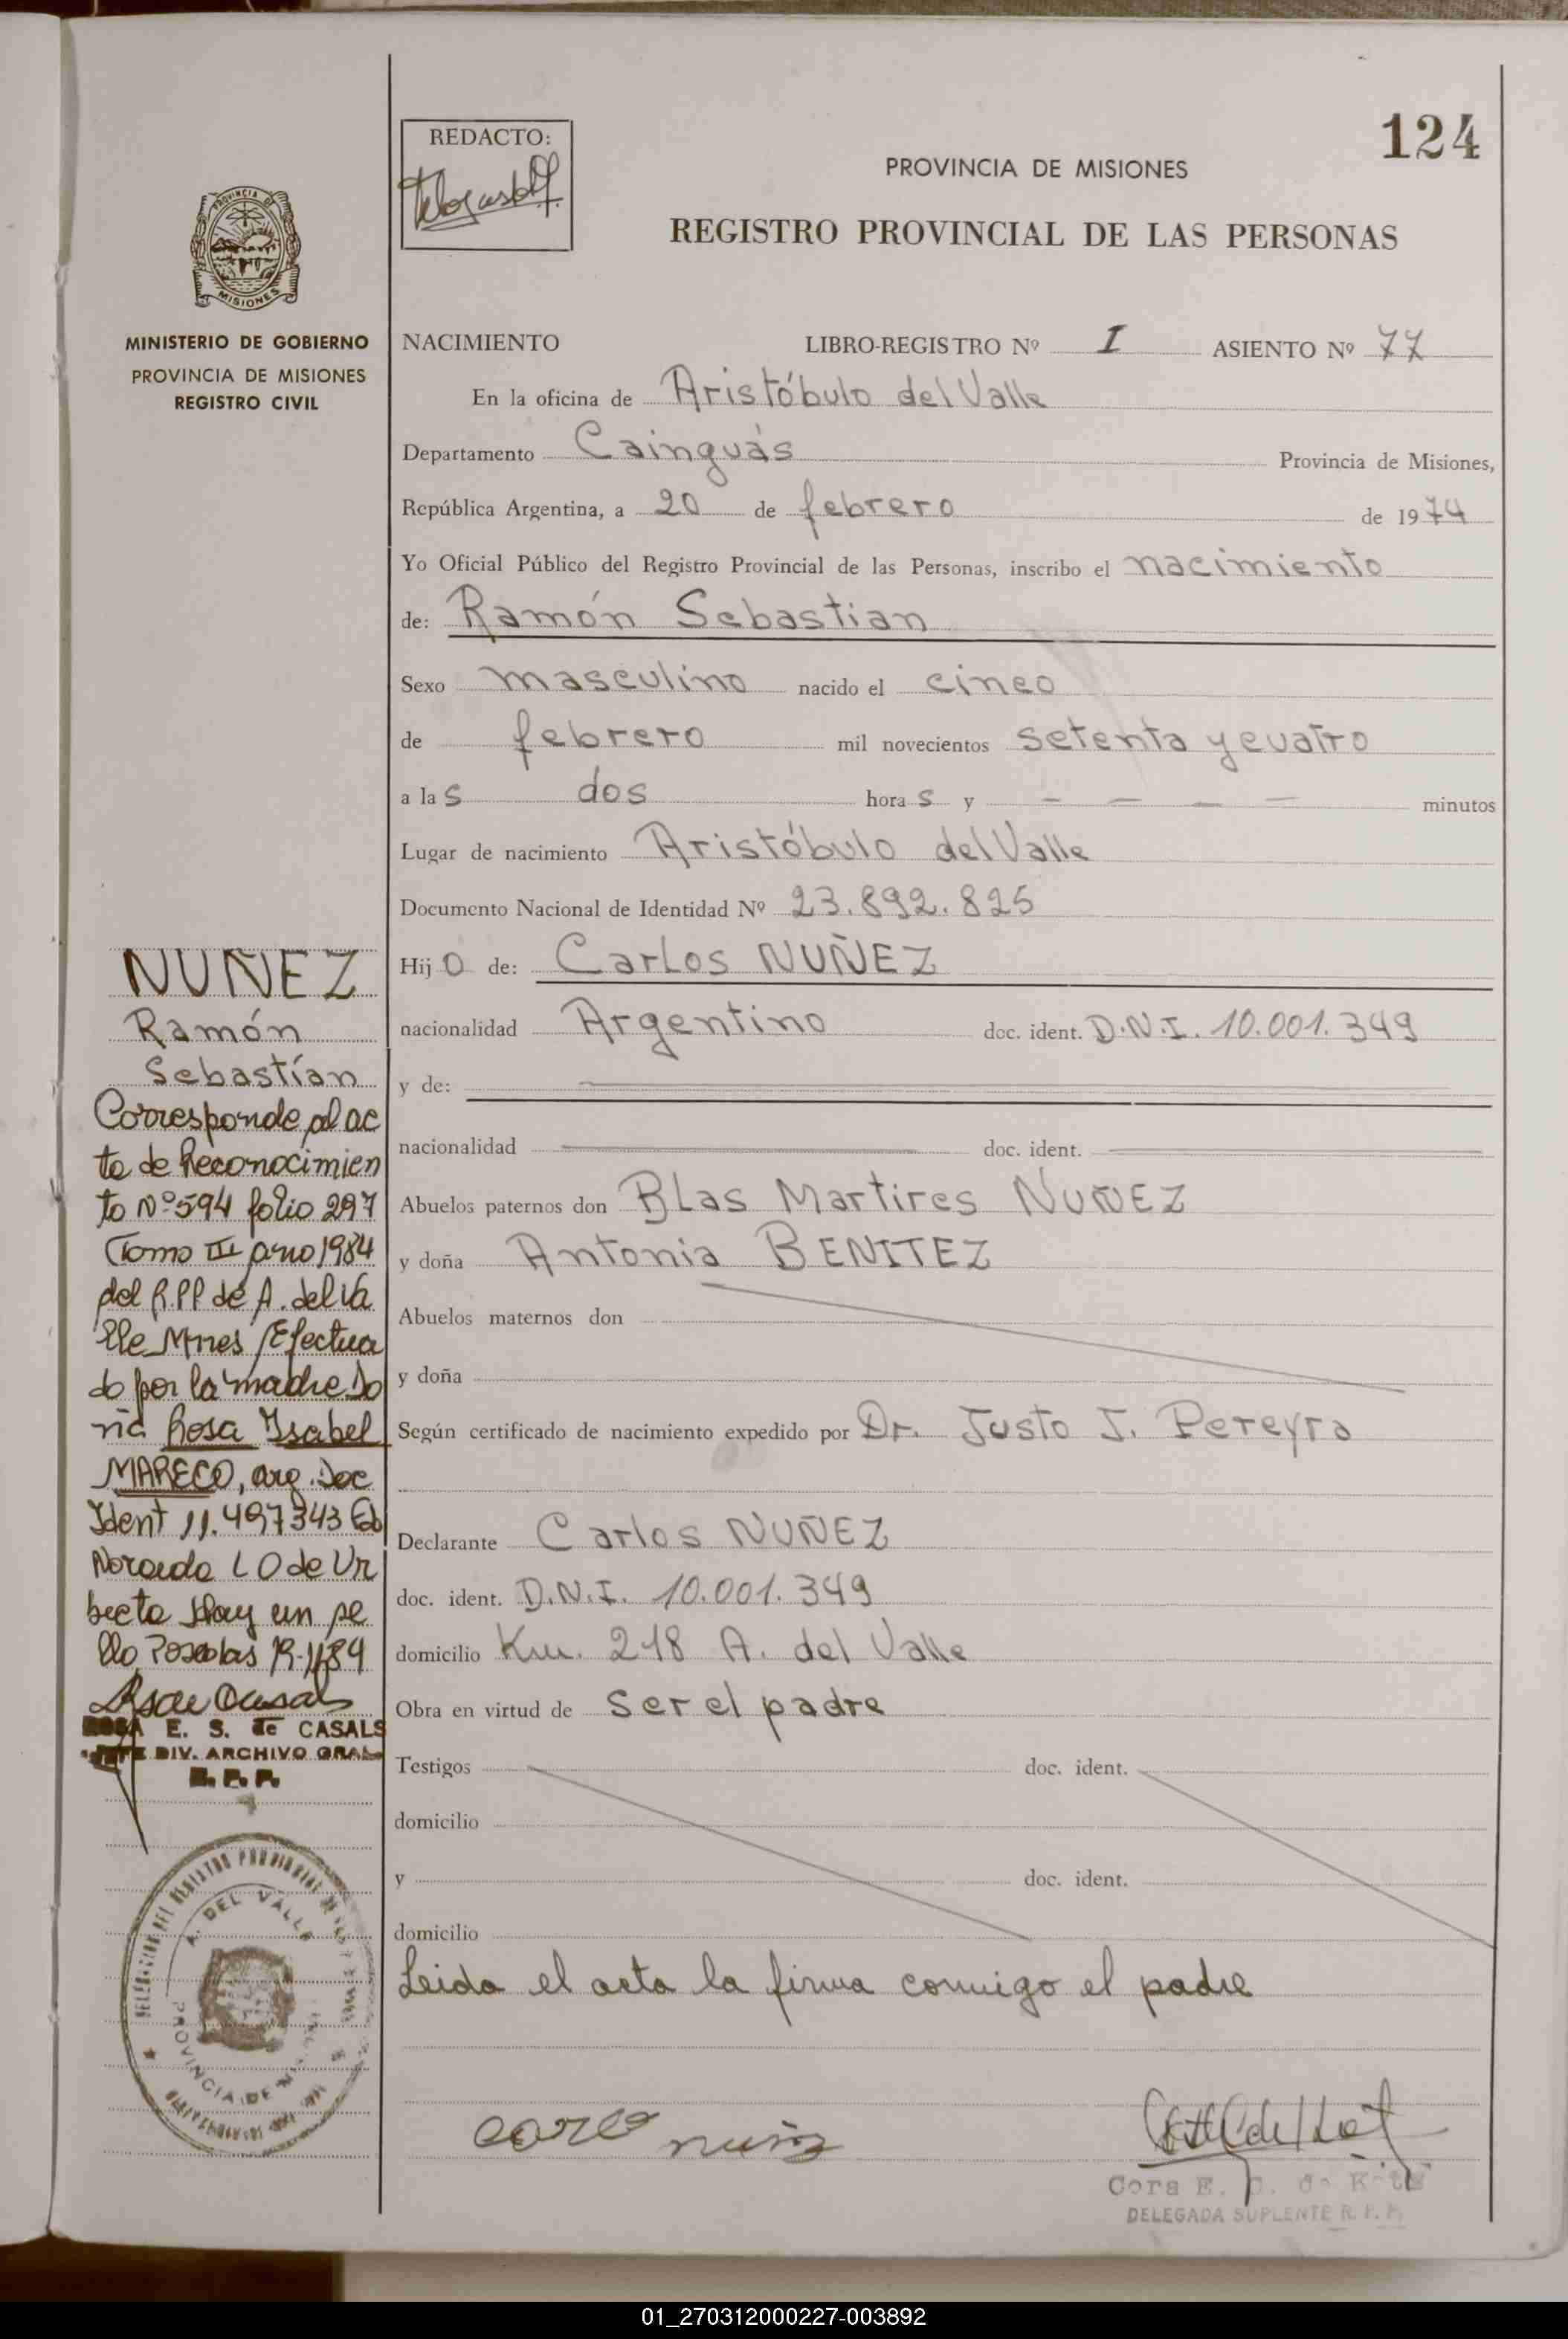 124
REDACTO:
PROVINCIA DE MISIONES
REGISTRO PROVINCIAL DE LAS PERSONAS
PROVINCIA DE
MISIONES
MINISTERIO DE GOBIERNO
PROVINCIA DE MISIONES
REGISTRO CIVIL
NACIMIENTO LIBRO-REGISTRO Nº I ASIENTO Nº 77
En la oficina de Aristóbulo del Valle
Departamento Cainguás Provincia de Misiones,
República Argentina, a 20 de febrero de 1974
Yo Oficial Público del Registro Provincial de las Personas, inscribo el nacimiento
de: Ramón Sebastian
Sexo masculino nacido el cinco
de febrero mil novecientos setenta y cuatro
a las dos horas y — — — — minutos
Lugar de nacimiento Aristóbulo del Valle
Documento Nacional de Identidad Nº 23.892.825
Hijo de: Carlos NUÑEZ
nacionalidad Argentino doc. ident. D.N.I. 10.001.349
y de:
nacionalidad doc. ident.
Abuelos paternos don Blas Martires NUÑEZ
y doña Antonia BENITEZ
Abuelos maternos don
y doña
Según certificado de nacimiento expedido por Dr. Justo J. Pereyra
Declarante Carlos NUÑEZ
doc. ident. D.N.I. 10.001.349
domicilio Km. 218 A. del Valle
Obra en virtud de ser el padre
Testigos doc. ident.
domicilio
y doc. ident.
domicilio
Leida el acta la firma conmigo el padre
Cora E. C. de
DELEGADA SUPLENTE R. P. P.
NUÑEZ
Ramón
Sebastían
Corresponde al ac
ta de Reconocimien
to Nº 594 folio 297
Tomo III año 1984
del R.P.P de A. del Va
lle Mnes/Efectua
do por la madre Do
ña Rosa Ysabel
MARECO, arg. Doc
Ident 11.497343
de Ur
beeta Hay un se
llo Posadas
ROSA E. S. de CASALS
JEFE DIV. ARCHIVO GRAL
R. P. P.
A. DEL VALLE
PROVINCIA DE
01_270312000227-003892